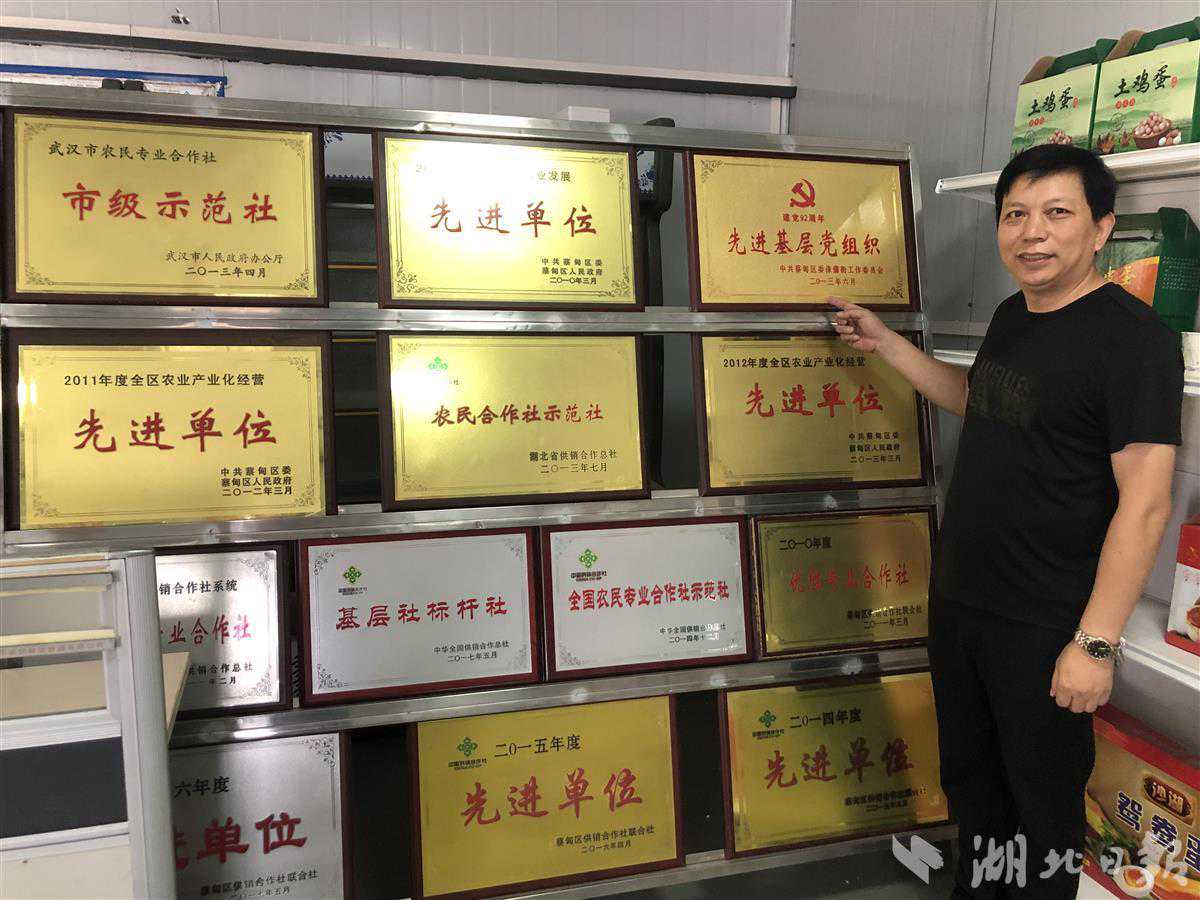 武汉市农民专业合作社
市级示范社
武汉市人民政府办公厅
二〇一三年四月
业发展
先进单位
中共蔡甸区委
蔡甸区人民政府
二〇一〇年三月
建党92周年
先进基层党组织
中共蔡甸区委侏儒街工作委员会
二〇一三年六月
土鸡蛋
土鸡蛋
2011年度全区农业产业化经营
先进单位
中共蔡甸区委
蔡甸区人民政府
二〇一二年三月
农民合作社示范社
湖北省供销合作总社
二〇一三年七月
2012年度全区农业产业化经营
先进单位
中共蔡甸区委
蔡甸区人民政府
二〇一三年三月
销合作社系统
专业合作社
供销合作总社
年二月
中国供销合作社
CHINA CO-OP
基层社标杆社
中华全国供销合作总社
二〇一七年五月
中国供销合作社
CHINA CO-OP
全国农民专业合作社示范社
中华全国供销合作总社
二〇一四年十二月
二〇一〇年度
优胜专业合作社
蔡甸区供销合作社联合会
二〇一一年三月
六年度
先单位
蔡甸区供销合作社联合社
一七年五月
中国供销合作社
二〇一五年度
先进单位
蔡甸区供销合作社联合社
二〇一六年四月
中国供销合作社
二〇一四年度
先进单位
蔡甸区供销合作社联合社
洪湖
鸳鸯
湖北日报